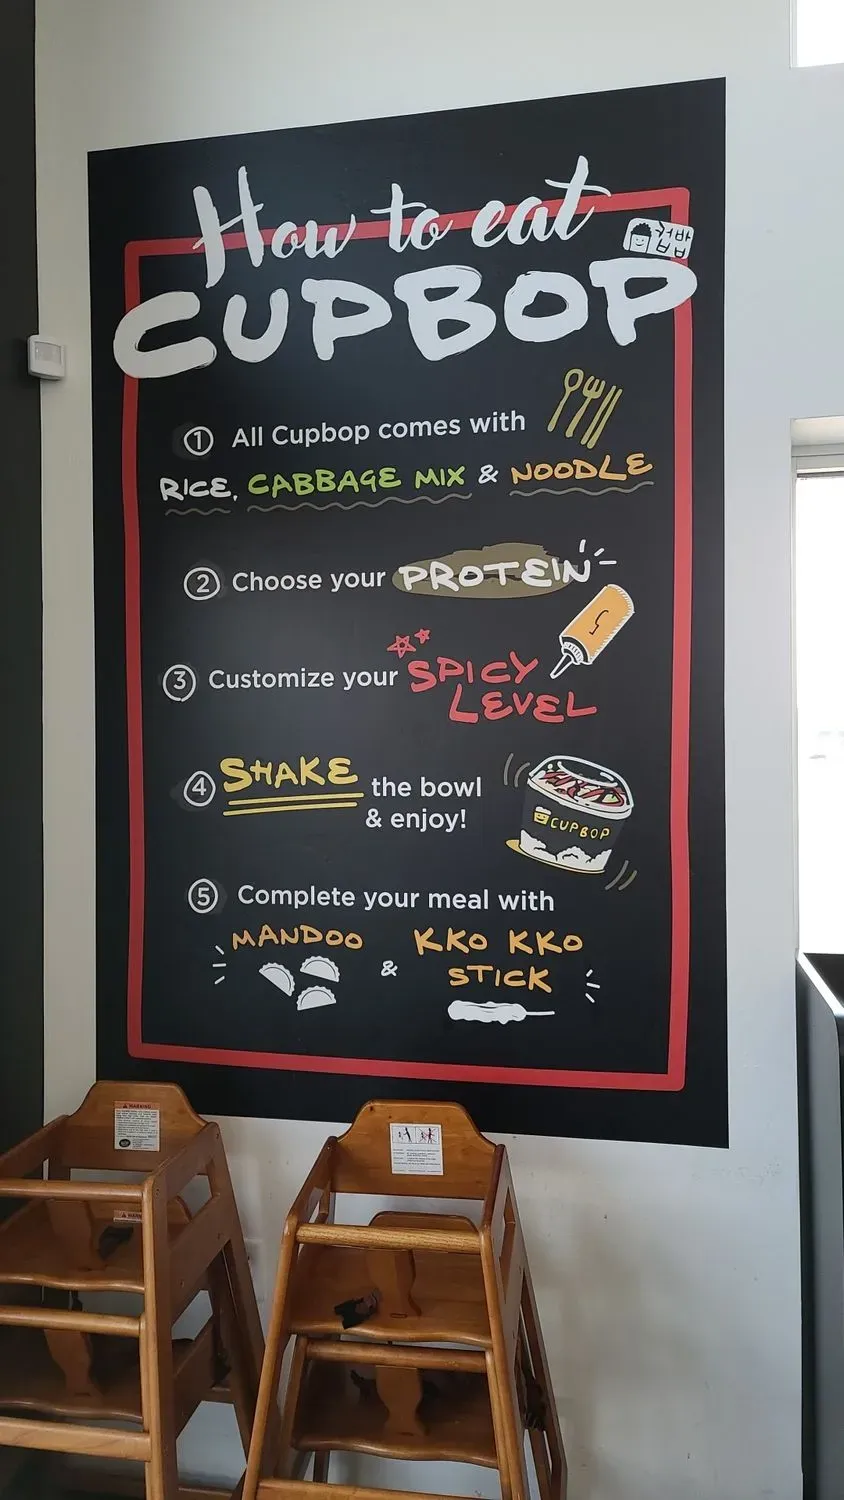 How to eat
컵밥
CUPBOP
1 All Cupbop comes with
RICE, CABBAGE MIX & NOODLE
2 Choose your PROTEIN
3 Customize your SPICY
LEVEL
4 SHAKE the bowl
& enjoy!
CUPBOP
5 Complete your meal with
MANDOO & KKO KKO
STICK
WARNING